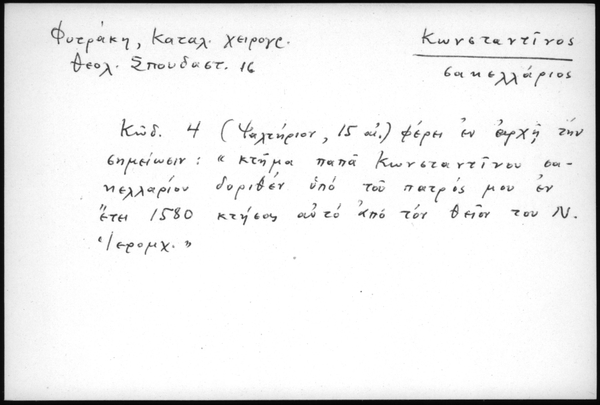 Φυτράκη, Καταλ. χειρογρ.
Θεολ. Σπουδαστ. 16
Κωνσταντῖνος
σακελλάριος
Κῶδ. 4 (Ψαλτήριον, 15 αἰ.) φέρει ἐν ἀρχῇ τὴν
σημείωσιν: "κτῆμα παπᾶ Κωνσταντίνου σα-
κελλαρίου δοριθέν ὑπό τοῦ πατρός μου ἐν
ἔτει 1580 κτήσας αὐτό ἀπό τόν θεῖον του Ν.
Ἱερομχ."